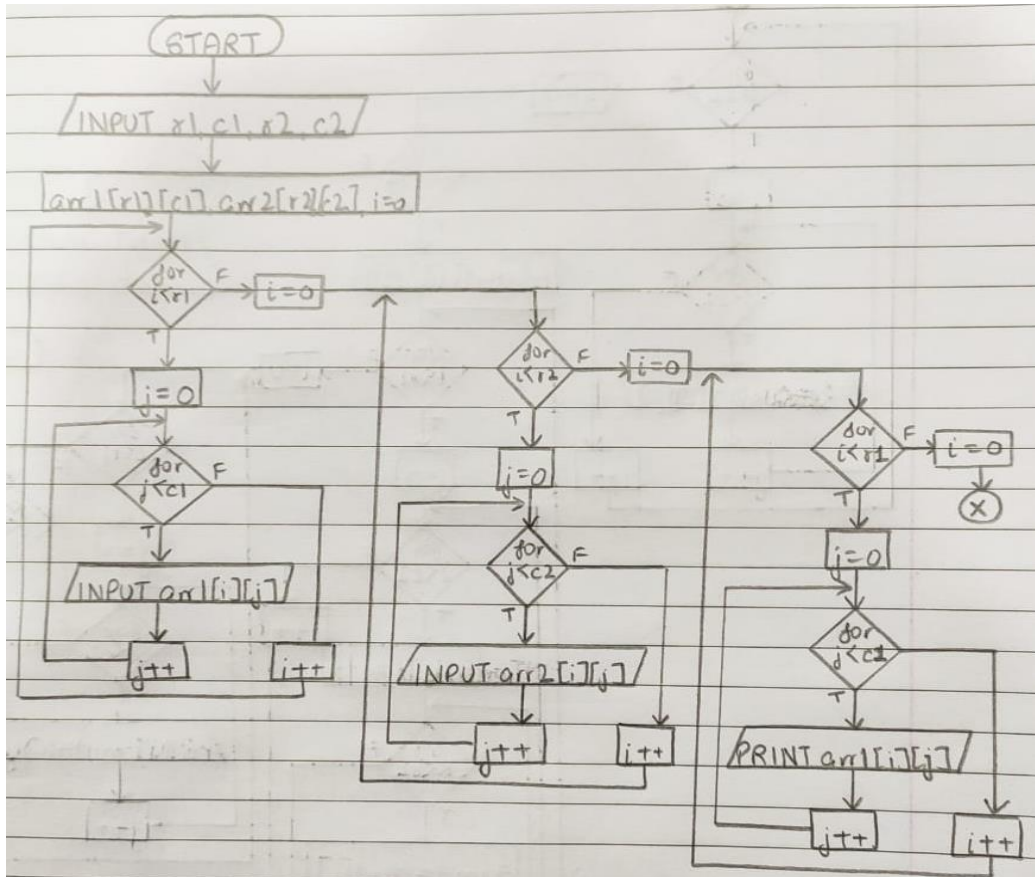 START
INPUT r1, c1, r2, c2
arr1[r1][c1], arr2[r2][c2], i=0
for
i<r1
F
i=0
T
j=0
for
j<c1
F
T
INPUT arr1[i][j]
j++
i++
for
i<r2
F
i=0
T
j=0
for
j<c2
F
T
INPUT arr2[i][j]
j++
i++
for
i<r1
F
i=0
X
T
j=0
for
j<c1
F
T
PRINT arr1[i][j]
j++
i++